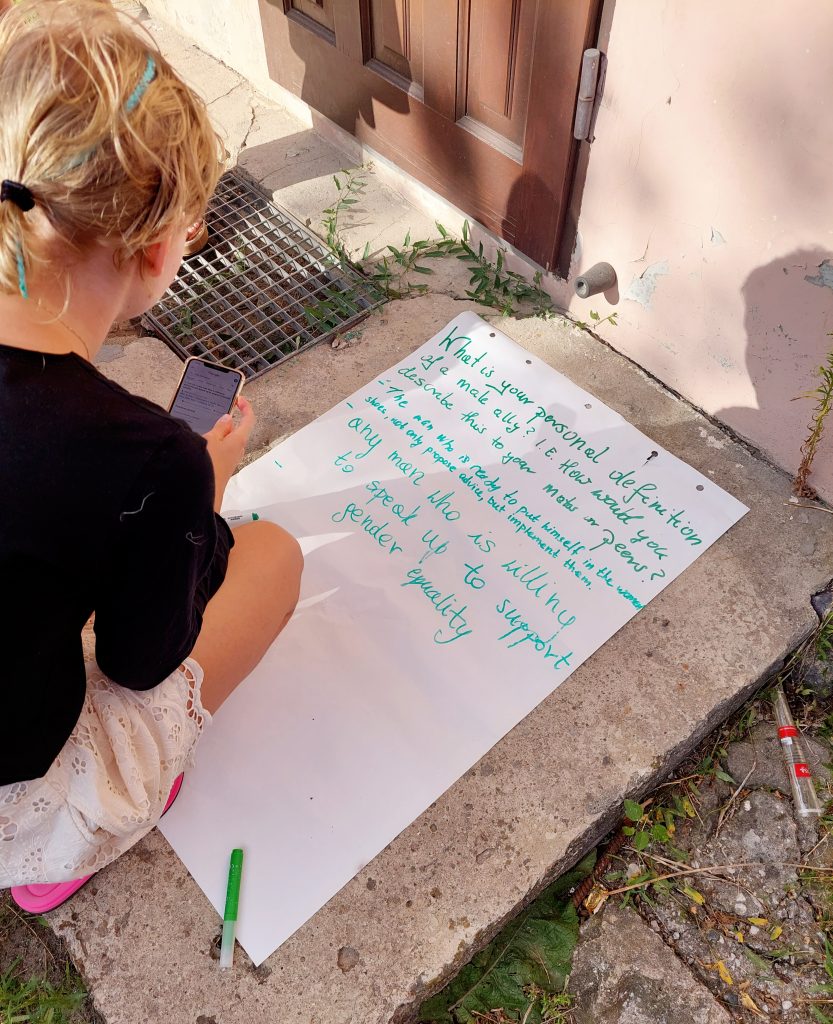 What is your personal definition
of a male ally? I.E. How would you
describe this to your mates or peers?
- The man who is ready to put himself in the women
shoes, not only propose advice, but implement them.
- any man who is willing
to speak up to support
gender equality
-